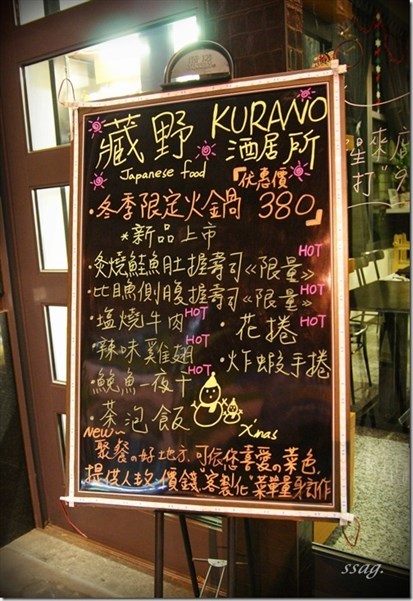 藏野 KURANO
Japanese food 酒居所
「優惠價
·冬季限定火鍋 380」
*新品上市
炙燒鮭魚肚握壽司《限量》HOT
·比目魚側腹握壽司《限量》HOT
·塩燒牛肉 HOT ·花捲 HOT
·辣味雞翅 HOT ·炸蝦手捲
·鯳魚一夜干 HOT
·茶泡飯
X'mas
New~
聚餐の好地方,可依您喜愛の菜色
提供人數、價錢,"客製化"菜單量身訂作
星來店
打"9
ssag.